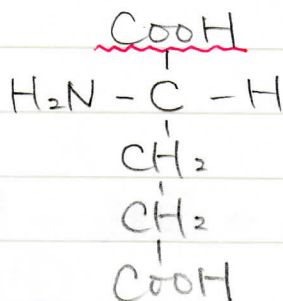 COOH
H₂N - C - H
CH₂
CH₂
COOH